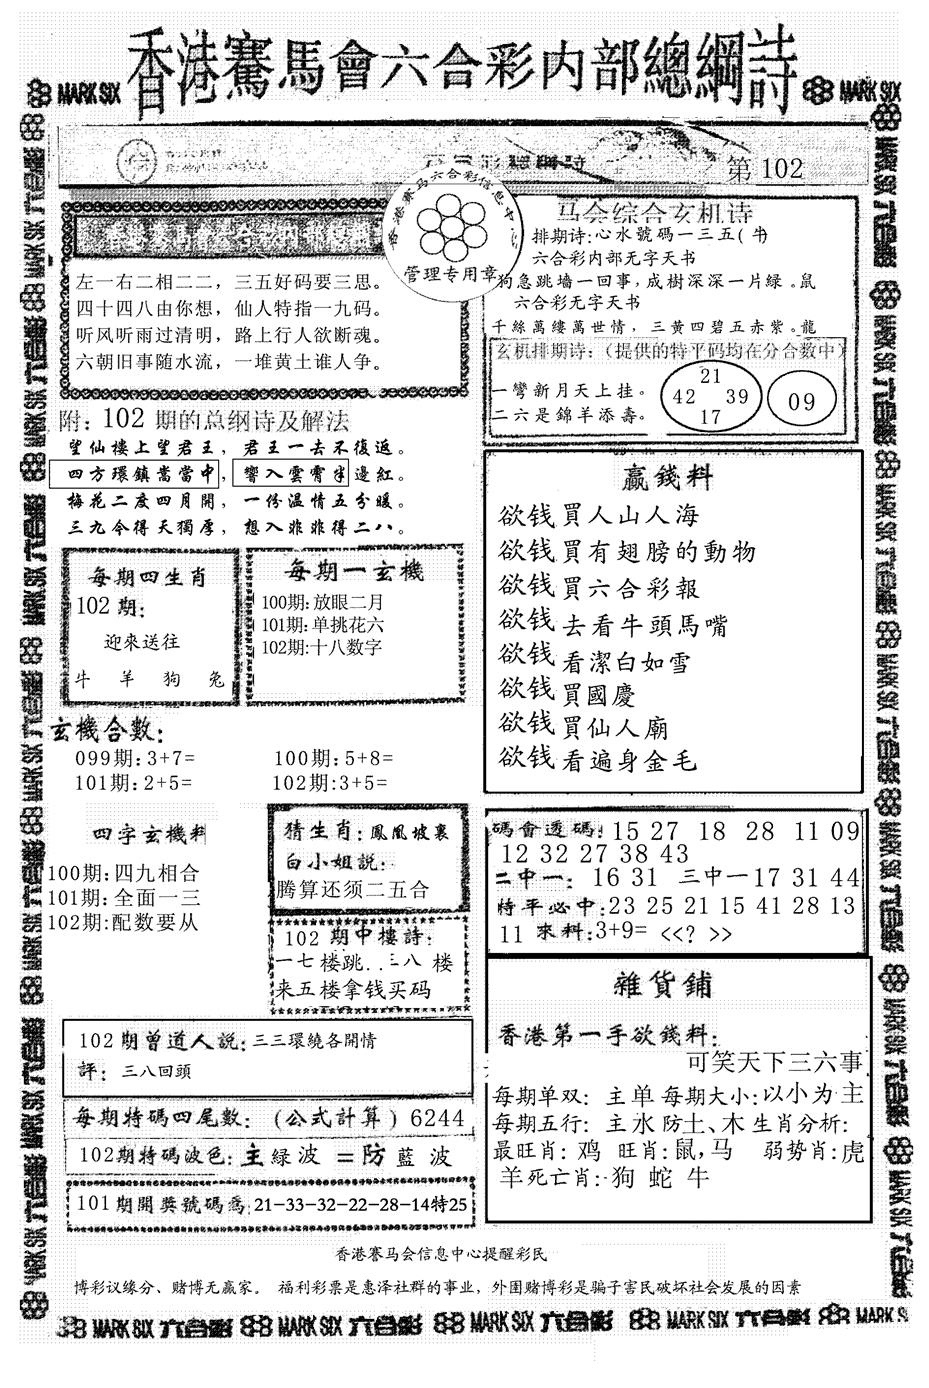 香港賽馬會六合彩内部總綱詩
MARK SIX
MARK SIX
第 102
香港赛马六合彩信息中
管理专用章
左一右二相二二，三五好码要三思。
四十四八由你想，仙人特指一九码。
听风听雨过清明，路上行人欲断魂。
六朝旧事随水流，一堆黄土谁人争。
马会综合玄机诗
排期诗:心水號码一三五(牛
六合彩内部无字天书
狗急跳墙一回事,成樹深深一片緑。鼠
六合彩无字天书
千絲萬縷萬世情，三黄四碧五赤紫。龍
玄机排期诗:（提供的特平码均在分合数中）
一彎新月天上挂。
二六是錦羊添壽。
21
42 39
17
09
附: 102 期的总纲诗及解法
望仙樓上望君王，君王一去不復返。
四方環鎮嵩當中，響入雲霄半邊紅。
梅花二度四月開，一份温情五分暖。
三九今得天獨厚，想入非非得二八。
每期四生肖
102 期:
迎來送往
牛 羊 狗 兔
每期一玄機
100期:放眼二月
101期:单挑花六
102期:十八数字
赢錢料
欲钱買人山人海
欲钱買有翅膀的動物
欲钱買六合彩報
欲钱去看牛頭馬嘴
欲钱看潔白如雪
欲钱買國慶
欲钱買仙人廟
欲钱看遍身金毛
玄機合數:
099期:3+7= 100期:5+8=
101期:2+5= 102期:3+5=
四字玄機料
100期:四九相合
101期:全面一三
102期:配数要从
猜生肖:鳳凰坡裏
白小姐説:
腾算还须二五合
102 期中樓詩:
一七楼跳..三八 楼
来五楼拿钱买码
碼會透碼: 15 27 18 28 11 09
12 32 27 38 43
二中一: 16 31 三中一17 31 44
特平必中:23 25 21 15 41 28 13
11 來料:3+9= <<? >>
102 期曾道人説:三三環繞各開情
評: 三八回頭
每期特碼四尾數: (公式計算) 6244
102期特碼波色:主緑波 =防藍 波
101期開獎號碼爲:21-33-32-22-28-14特25
雜貨鋪
香港第一手欲錢料:
可笑天下三六事
每期单双: 主单 每期大小:以小为主
每期五行: 主水防土、木 生肖分析:
最旺肖: 鸡 旺肖:鼠,马 弱势肖:虎
羊 死亡肖:狗 蛇 牛
香港赛马会信息中心提醒彩民
博彩议缘分、赌博无赢家。 福利彩票是惠泽社群的事业，外围赌博彩是骗子害民破坏社会发展的因素
MARK SIX 六合彩 MARK SIX 六合彩 MARK SIX 六合彩 MARK SIX 六合彩 MARK SIX